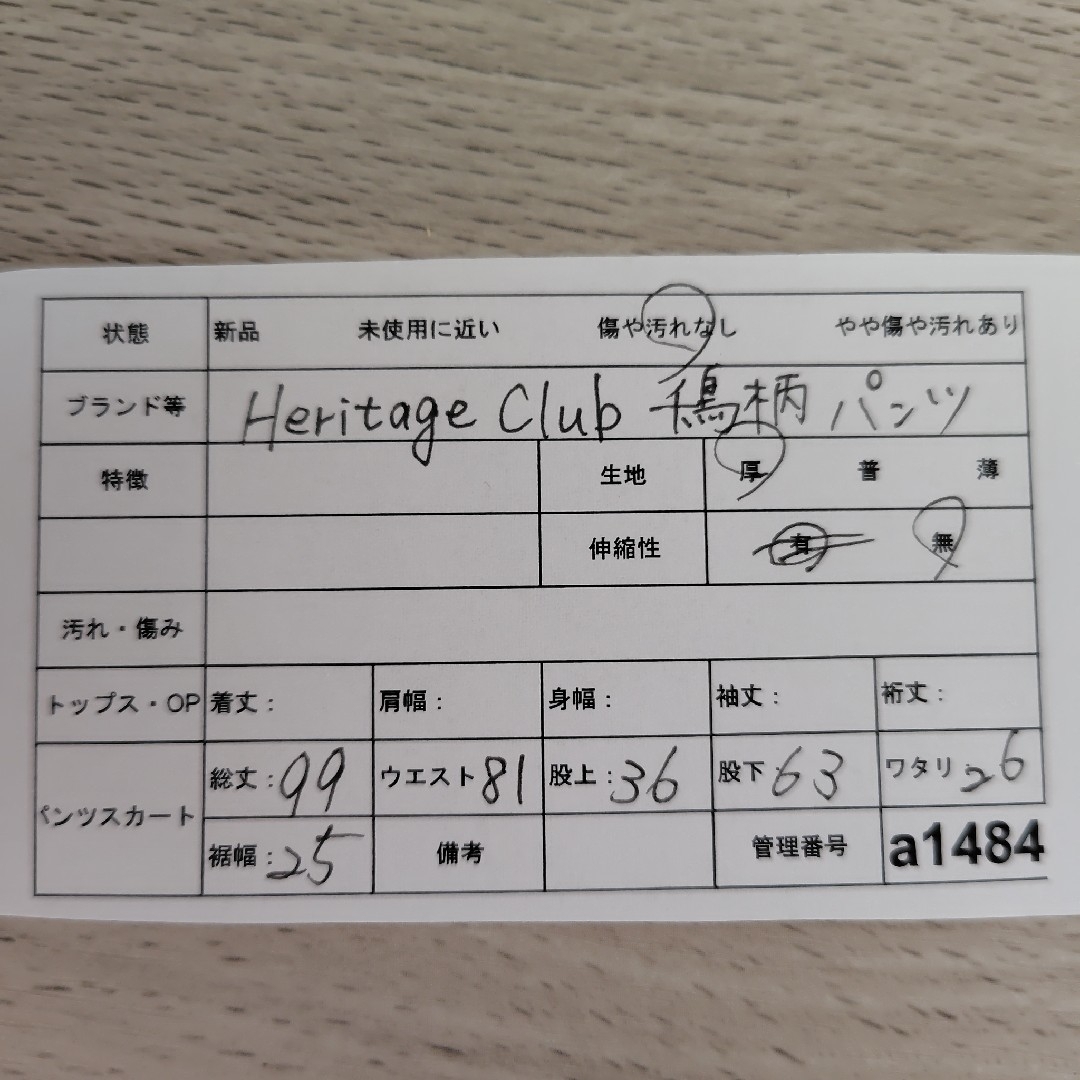 状態 新品 未使用に近い 傷や汚れなし やや傷や汚れあり
ブランド等 Heritage Club 千鳥柄 パンツ
特徴 生地 厚 普 薄
伸縮性 有 無
汚れ・傷み
トップス・OP 着丈: 肩幅: 身幅: 袖丈: 裄丈:
パンツスカート 総丈:99 ウエスト81 股上:36 股下:63 ワタリ26
裾幅:25 備考 管理番号 a1484